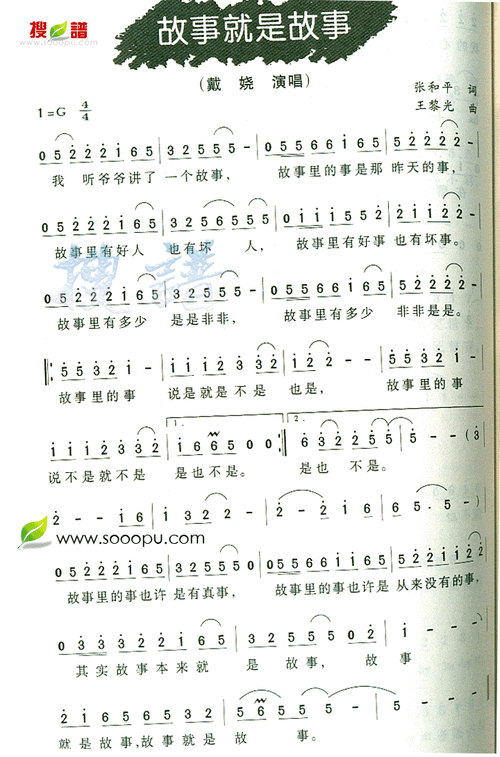 搜谱
www.sooopu.com
故事就是故事
(戴 娆 演唱)
1=G 4/4
张和平 词
王黎光 曲
0 5 2 2 2 1 6 5 3 2 5 5 5 - 0 5 5 6 6 1 1 1 6 5 5 2 2 2 -
我 听爷爷讲了 一个故事, 故事里的事是那 昨天的事,
0 5 2 2 2 1 6 5 3 2 5 6 5 5 5 - 0 1 1 1 5 5 5 2 1 1 1 2 -
故事里有好人 也有坏 人, 故事里有好事 也有坏事。
0 5 2 2 2 1 6 5 3 2 5 5 5 - 0 5 5 6 6 1 6 5 5 2 2 2 -
故事里有多少 是是非非, 故事里有多少 非非是是。
5 5 3 2 1 - 1 1 1 2 3 3 2 2 - 5 5 3 2 1 -
故事里的事 说是就是不是 也是, 故事里的事
1.
2.
1 1 1 2 3 3 2 1 6 6 5 0 0 6 3 2 2 5 5 5 - - (3
说不是就不是 是也不是。 是也 不是。
2 - - 1 6 1 - - 1 2 2 - - 1 6 6 5 . 5 . )
www.sooopu.com
0 5 2 2 2 1 6 5 3 2 5 5 5 - 0 5 5 6 6 1 1 1 6 5 5 2 2 2 -
故事里的事也许 是有真事, 故事里的事也许是 从来没有的事,
0 3 3 3 3 2 2 1 6 5 3 2 5 5 5 0 2 1 - - -
其实故事本来就 是 故事, 故 事
2 1 6 5 6 5 3 2 5 6 5 5 - 5 - - - 5 - - -
就是故事,故事就是 故 事。